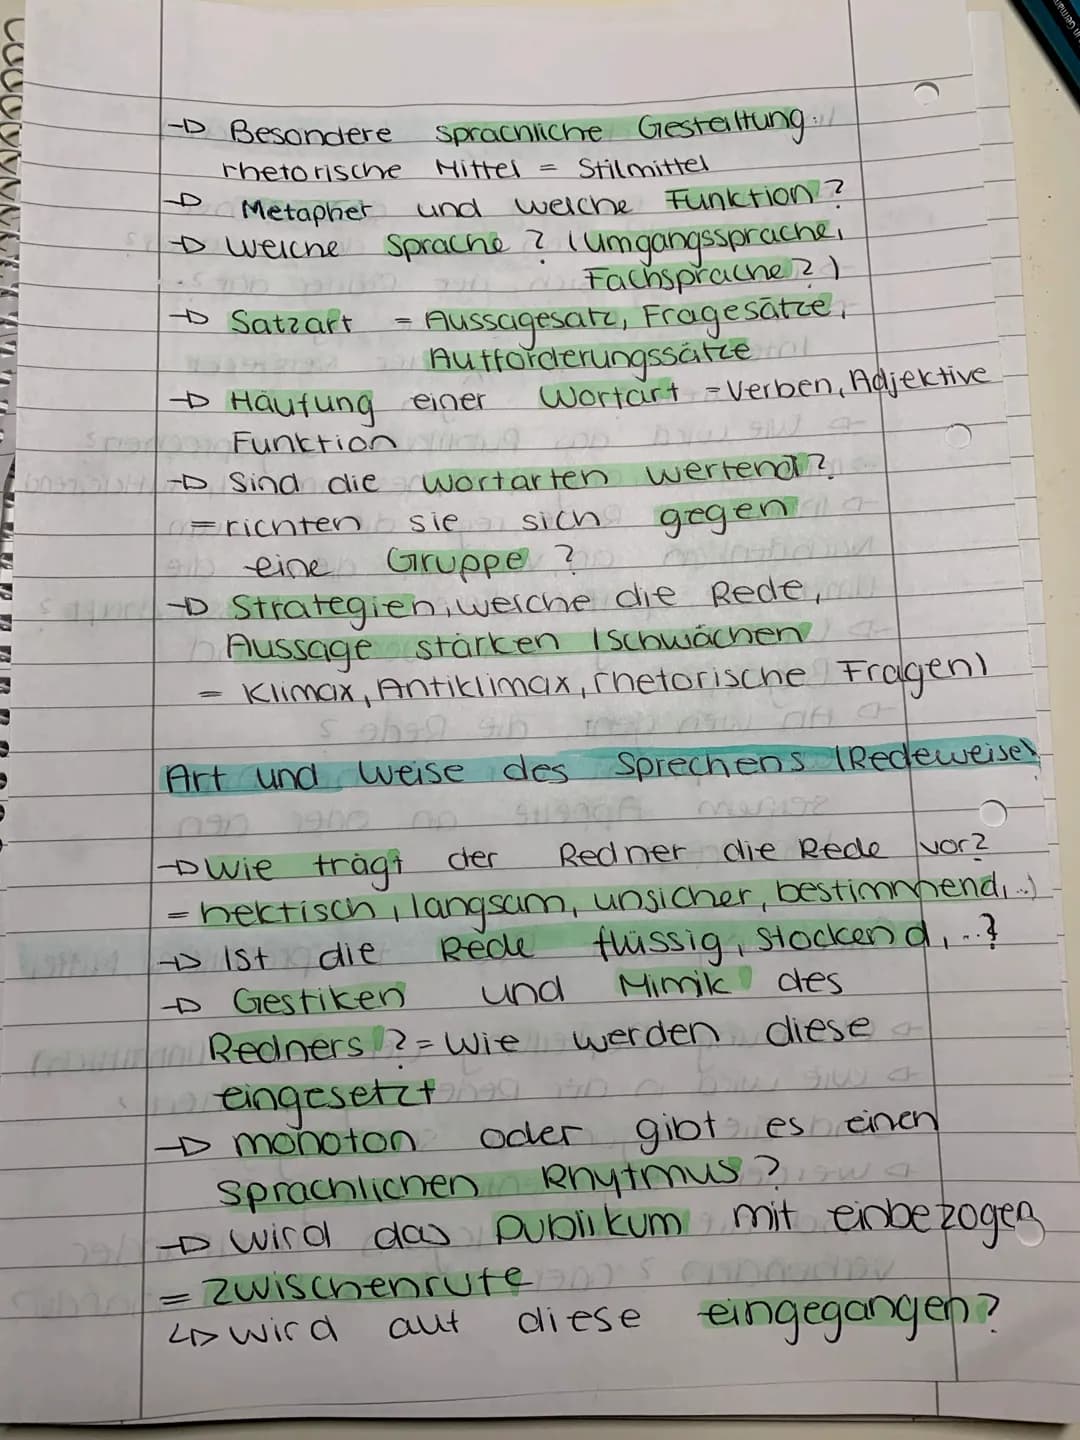 → Besondere sprachliche Gestaltung:
rhetorische Mittel = Stilmittel
→ Metapher und welche Funktion?
→ Welche Sprache? (Umgangssprache,
Fachsprache?)
→ Satzart = Aussagesatz, Fragesätze,
Aufforderungssätze
→ Häufung einer Wortart = Verben, Adjektive
Funktion
→ Sind die Wortarten wertend?
= richten sie sich gegen
eine Gruppe?
→ Strategien, welche die Rede,
Aussage stärken / schwächen
= Klimax, Antiklimax, rhetorische Fragen)
Art und Weise des Sprechens (Redeweise)
→ Wie trägt der Redner die Rede vor?
= hektisch, langsam, unsicher, bestimmend,..)
→ Ist die Rede flüssig, stockend,..?
→ Gestiken und Mimik des
Redners? = Wie werden diese
eingesetzt
→ monoton oder gibt es einen
sprachlichen Rhytmus?
→ Wird das Publikum mit einbezogen
= Zwischenrufe
↳ Wird auf diese eingegangen?